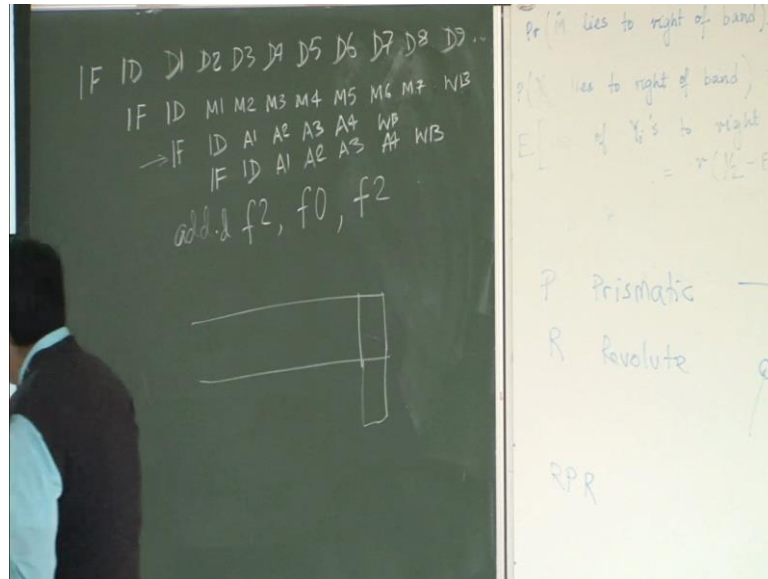 IF ID D1 D2 D3 D4 D5 D6 D7 D8 D9 ..
IF ID M1 M2 M3 M4 M5 M6 M7 WB
IF ID A1 A2 A3 A4 WB
IF ID A1 A2 A3 A4 WB
add.d f2, f0, f2
Pr( M lies to right of band)
lies to right of band)
E[ of Yi's to right
P Prismatic
R Revolute
RPR